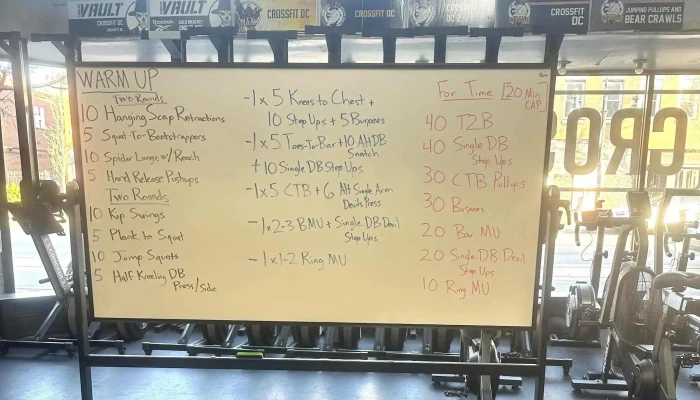 VAULT
CROSSFIT DC
VAULT
CROSSFIT DC
CROSSFIT DC
CROSSFIT DC
CROSSFIT DC
JUMPING PULLUPS AND
BEAR CRAWLS
WARM UP
Two Rounds
10 Hanging Scap Retractions
5 Squat-To-Bootstrappers
10 Spider Lunge w/ Reach
5 Hand Release Pushups
Two Rounds
10 Kip Swings
5 Plank to Squat
10 Jump Squats
5 Half Kneeling DB
Press/Side
-1x5 Knees to Chest +
10 Step Ups + 5 Burpees
-1x5 Toes-To-Bar + 10 Alt DB
Snatch
+ 10 Single DB Step Ups
-1x5 CTB + 6 Alt Single Arm
Devils Press
-1x2-3 BMU + Single DB Devil
Step Ups
-1x1-2 Ring MU
For Time [20 Min
CAP]
40 T2B
40 Single DB
Step Ups
30 CTB Pullups
30 Burpees
20 Bar MU
20 Single DB Devil
Step Ups
10 Ring MU